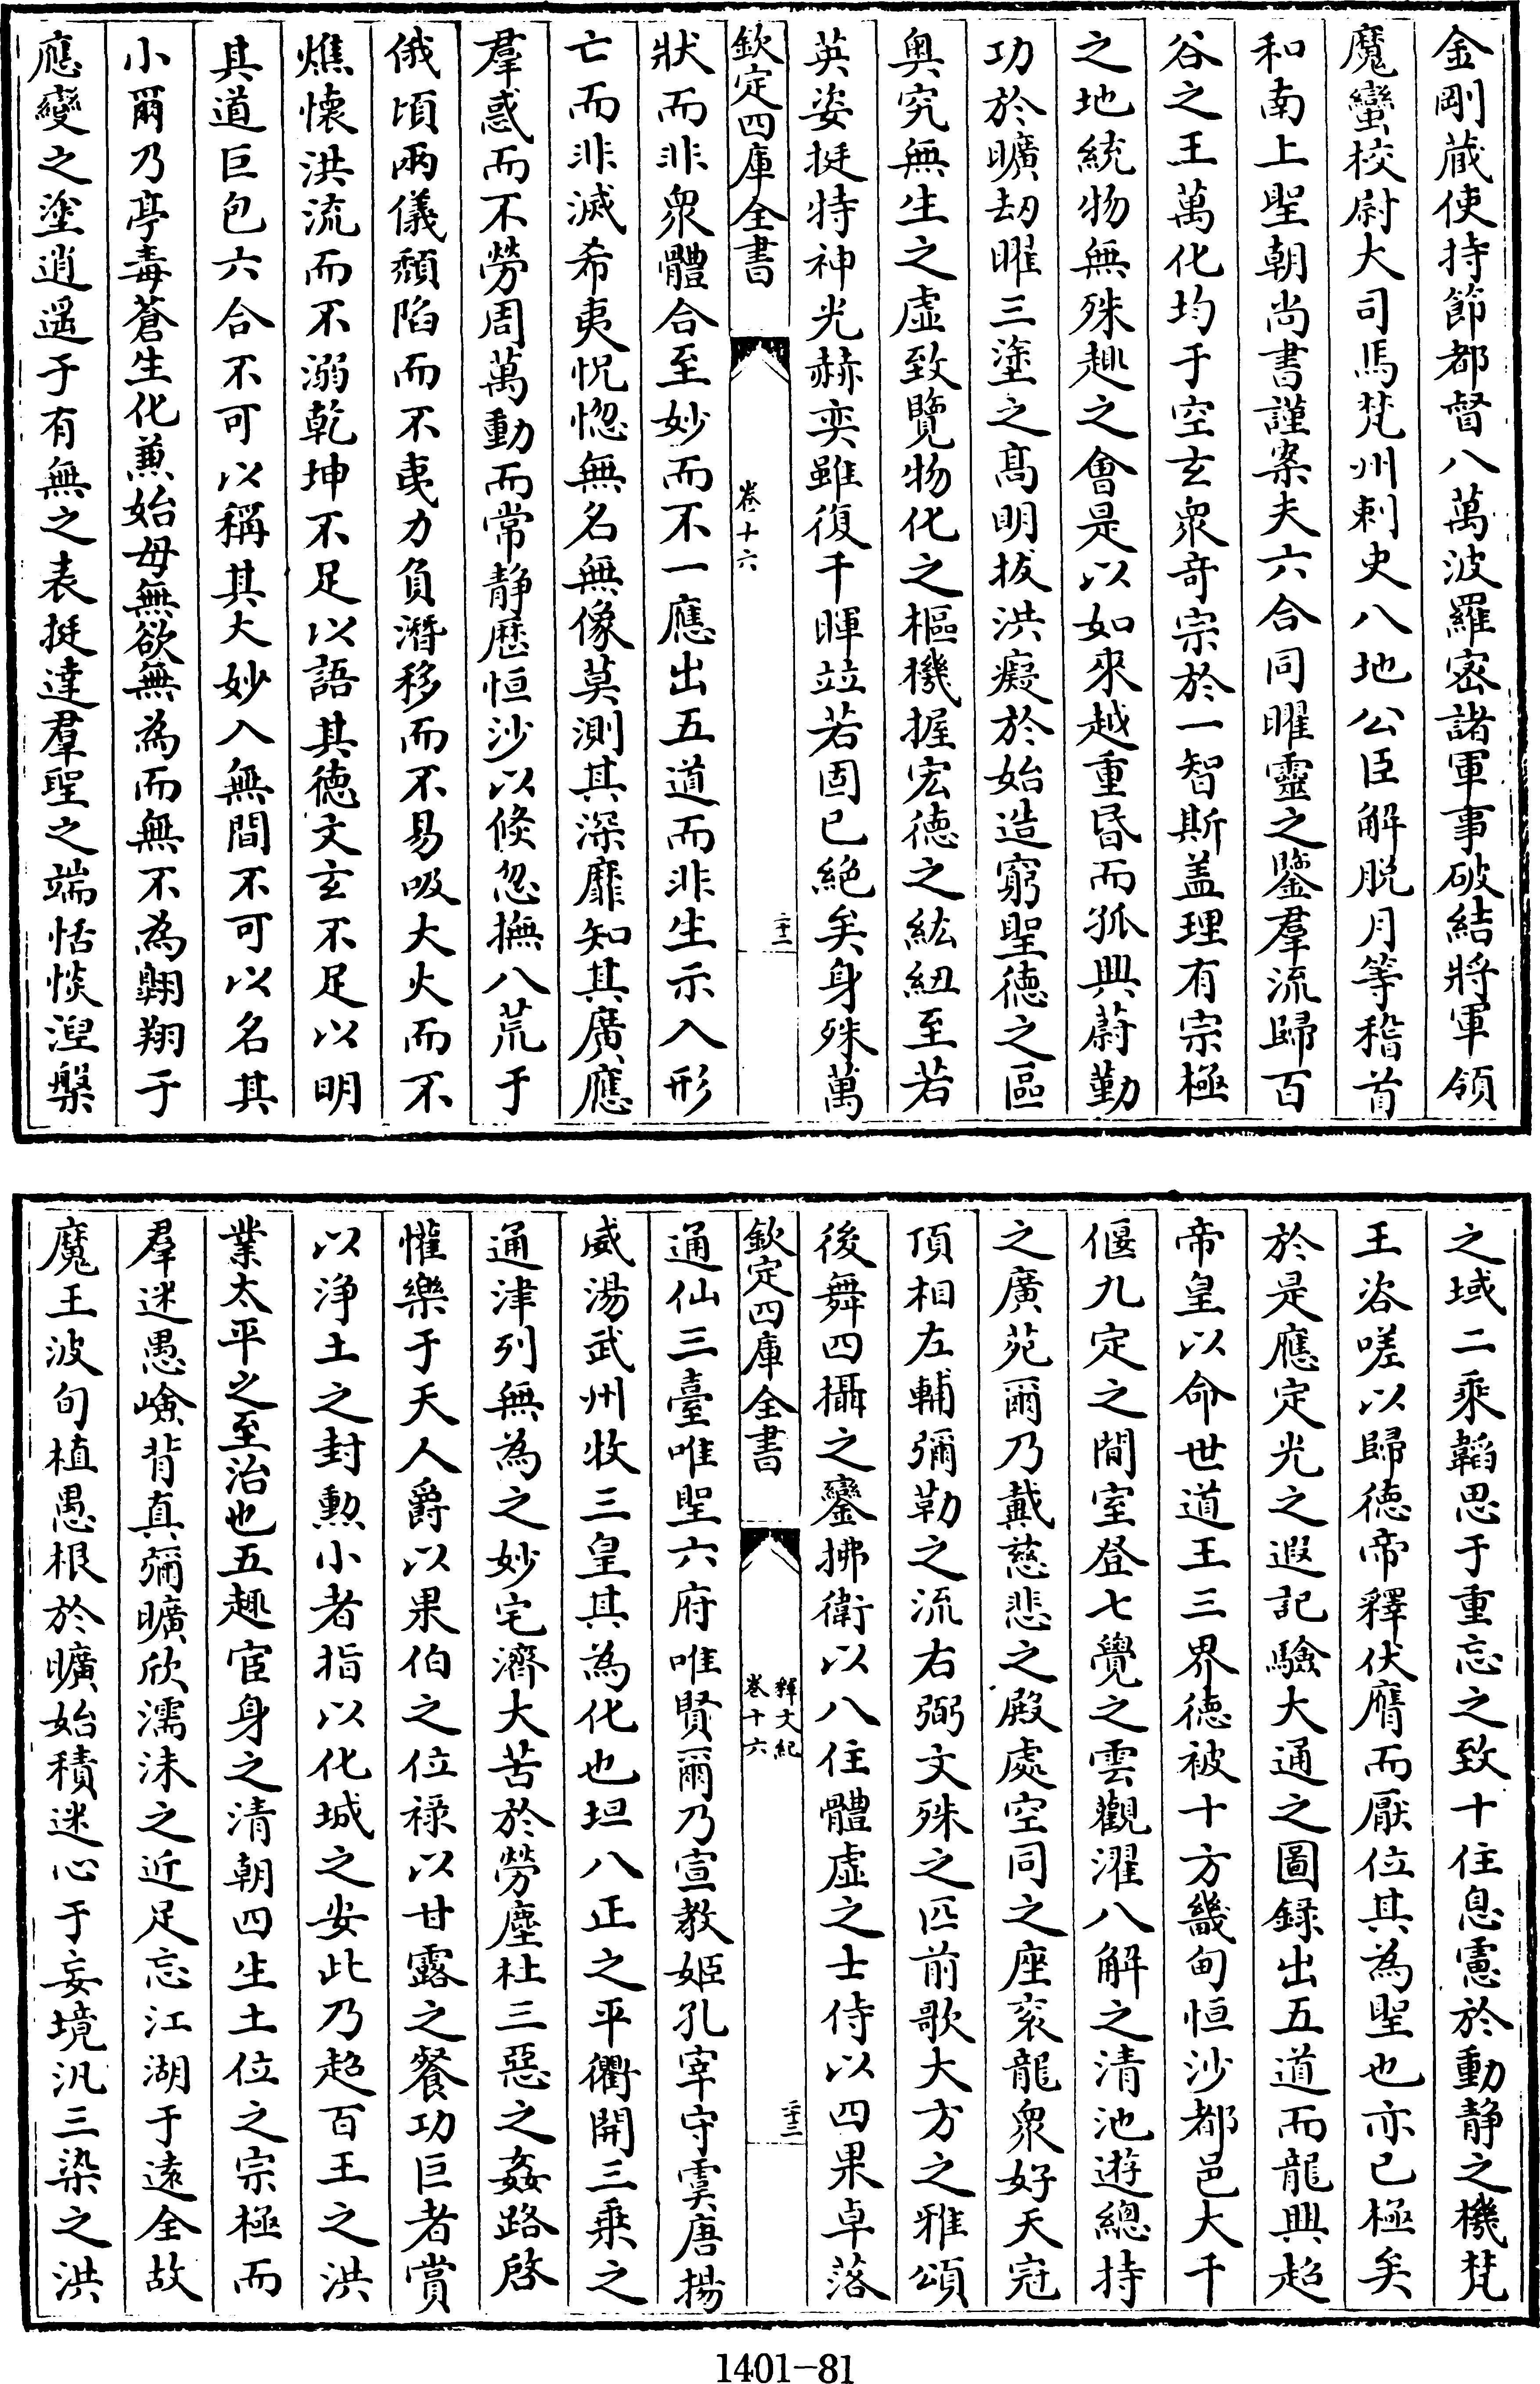 金剛蔵使持節都督八萬波羅宻諸軍事破結將軍領
魔蠻校尉大司馬梵州刺史八地公臣解脱月等稽首
和南上聖朝尚書謹案夫六合同曜靈之鑒羣流歸百
谷之王萬化均于空玄衆竒宗於一智斯盖理有宗極
之地統物無殊趣之會是以如來越重昬而孤興蔚勤
功於曠刼曜三塗之髙明拔洪癡於始造窮聖徳之區
奥究無生之虚致覽物化之樞機握宏徳之紘紐至若
英姿挺特神光赫奕雖復千暉竝若固已絶矣身殊萬
欽定四庫全書
卷十六
二十二
狀而非衆體合至妙而不一應出五道而非生示入形
亡而非滅希夷恍惚無名無像莫測其深靡知其廣應
羣惑而不勞周萬動而常静歴恒沙以倐忽撫八荒于
俄頃兩儀頽陷而不夷力負潛移而不易吸大火而不
燋懐洪流而不溺乾坤不足以語其徳文玄不足以明
其道巨包六合不可以稱其大妙入無間不可以名其
小爾乃亭毒蒼生化兼始母無欲無為而無不為翺翔于
應變之塗逍遥于有無之表挺達羣聖之端恬惔湼槃
之域二乘韜思于重忘之致十住息慮於動静之機梵
王咨嗟以歸徳帝釋伏膺而厭位其為聖也亦已極矣
於是應定光之遐記驗大通之圖録出五道而龍興超
帝皇以命世道王三界徳被十方畿甸恒沙都邑大千
偃九定之閒室登七覺之雲觀濯八解之清池遊總持
之廣苑爾乃戴慈悲之殿處空同之座衮龍衆好天冠
頂相左輔彌勒之流右弼文殊之匹前歌大方之雅頌
後舞四攝之鑾拂衛以八住體虚之士侍以四果卓落
欽定四庫全書
釋文紀
卷十六
二十三
通仙三臺唯聖六府唯賢爾乃宣教姬孔宰守虞唐揚
威湯武州牧三皇其為化也坦八正之平衢開三乗之
通津列無為之妙宅濟大苦於勞塵杜三惡之姦路啓
懽樂于天人爵以果伯之位祿以甘露之餐功巨者賞
以浄土之封勲小者指以化城之安此乃超百王之洪
業太平之至治也五趣宦身之清朝四生土位之宗極而
羣迷愚嶮背真彌曠欣濡沫之近足忘江湖于遠全故
魔王波旬植愚根於曠始積迷心于妄境汎三染之洪
1401-81